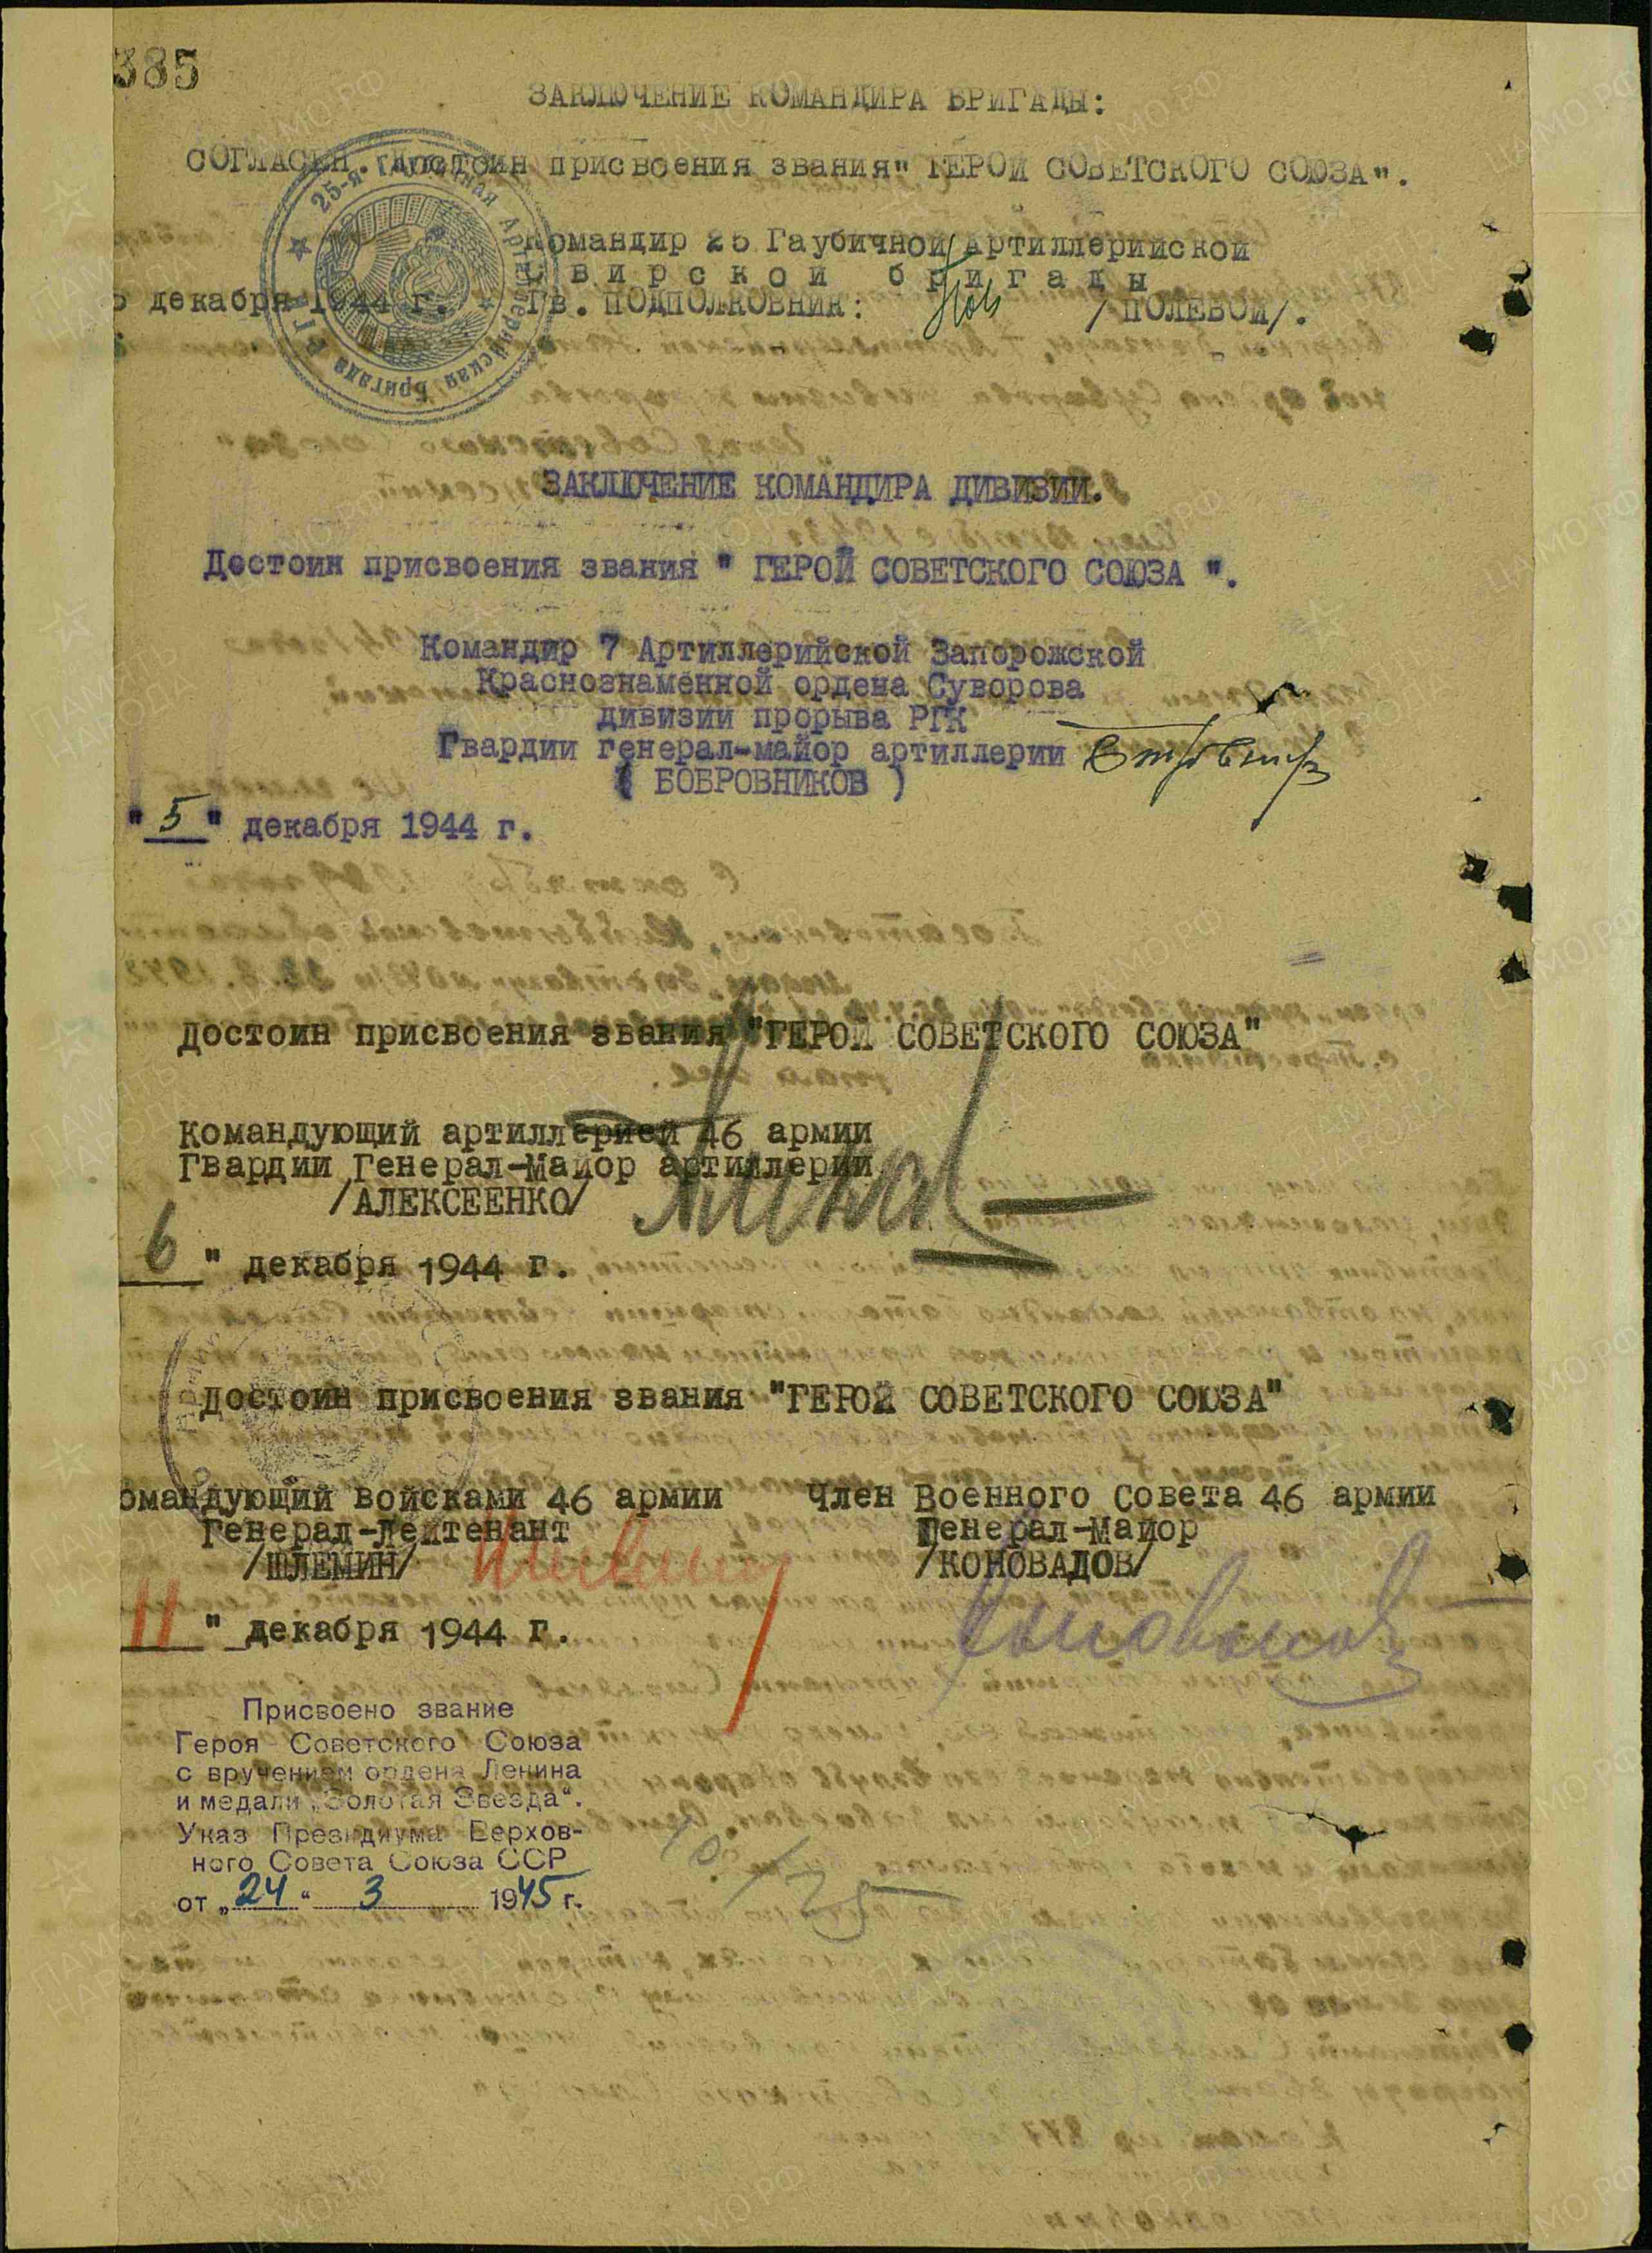 385
ЗАКЛЮЧЕНИЕ КОМАНДИРА БРИГАДЫ:
СОГЛАСЕН. Достоин присвоения звания" ГЕРОЙ СОВЕТСКОГО СОЮЗА".
Командир 25 Гаубичной Артиллерийской
Свирской бригады
декабря 1944 г. Гв. ПОДПОЛКОВНИК: /ПОЛЕВОЙ/.
ЗАКЛЮЧЕНИЕ КОМАНДИРА ДИВИЗИИ.
Достоин присвоения звания " ГЕРОЙ СОВЕТСКОГО СОЮЗА ".
Командир 7 Артиллерийской Запорожской
Краснознаменной ордена Суворова
дивизии прорыва РГК
Гвардии генерал-майор артиллерии
( БОБРОВНИКОВ )
"5" декабря 1944 г.
Достоин присвоения звания "ГЕРОЙ СОВЕТСКОГО СОЮЗА"
Командующий артиллерией 46 армии
Гвардии Генерал-Майор артиллерии
/АЛЕКСЕЕНКО/
6 " декабря 1944 г.
Достоин присвоения звания "ГЕРОЙ СОВЕТСКОГО СОЮЗА"
омандующий войсками 46 армии Член Военного Совета 46 армии
Генерал-Лейтенант Генерал-Майор
/ШЛЕМИН/ /КОНОВАЛОВ/
11 " декабря 1944 г.
Присвоено звание
Героя Советского Союза
с вручением ордена Ленина
и медали „Золотая Звезда“.
Указ Президиума Верхов-
ного Совета Союза ССР
от „24“ 3 1945 г.